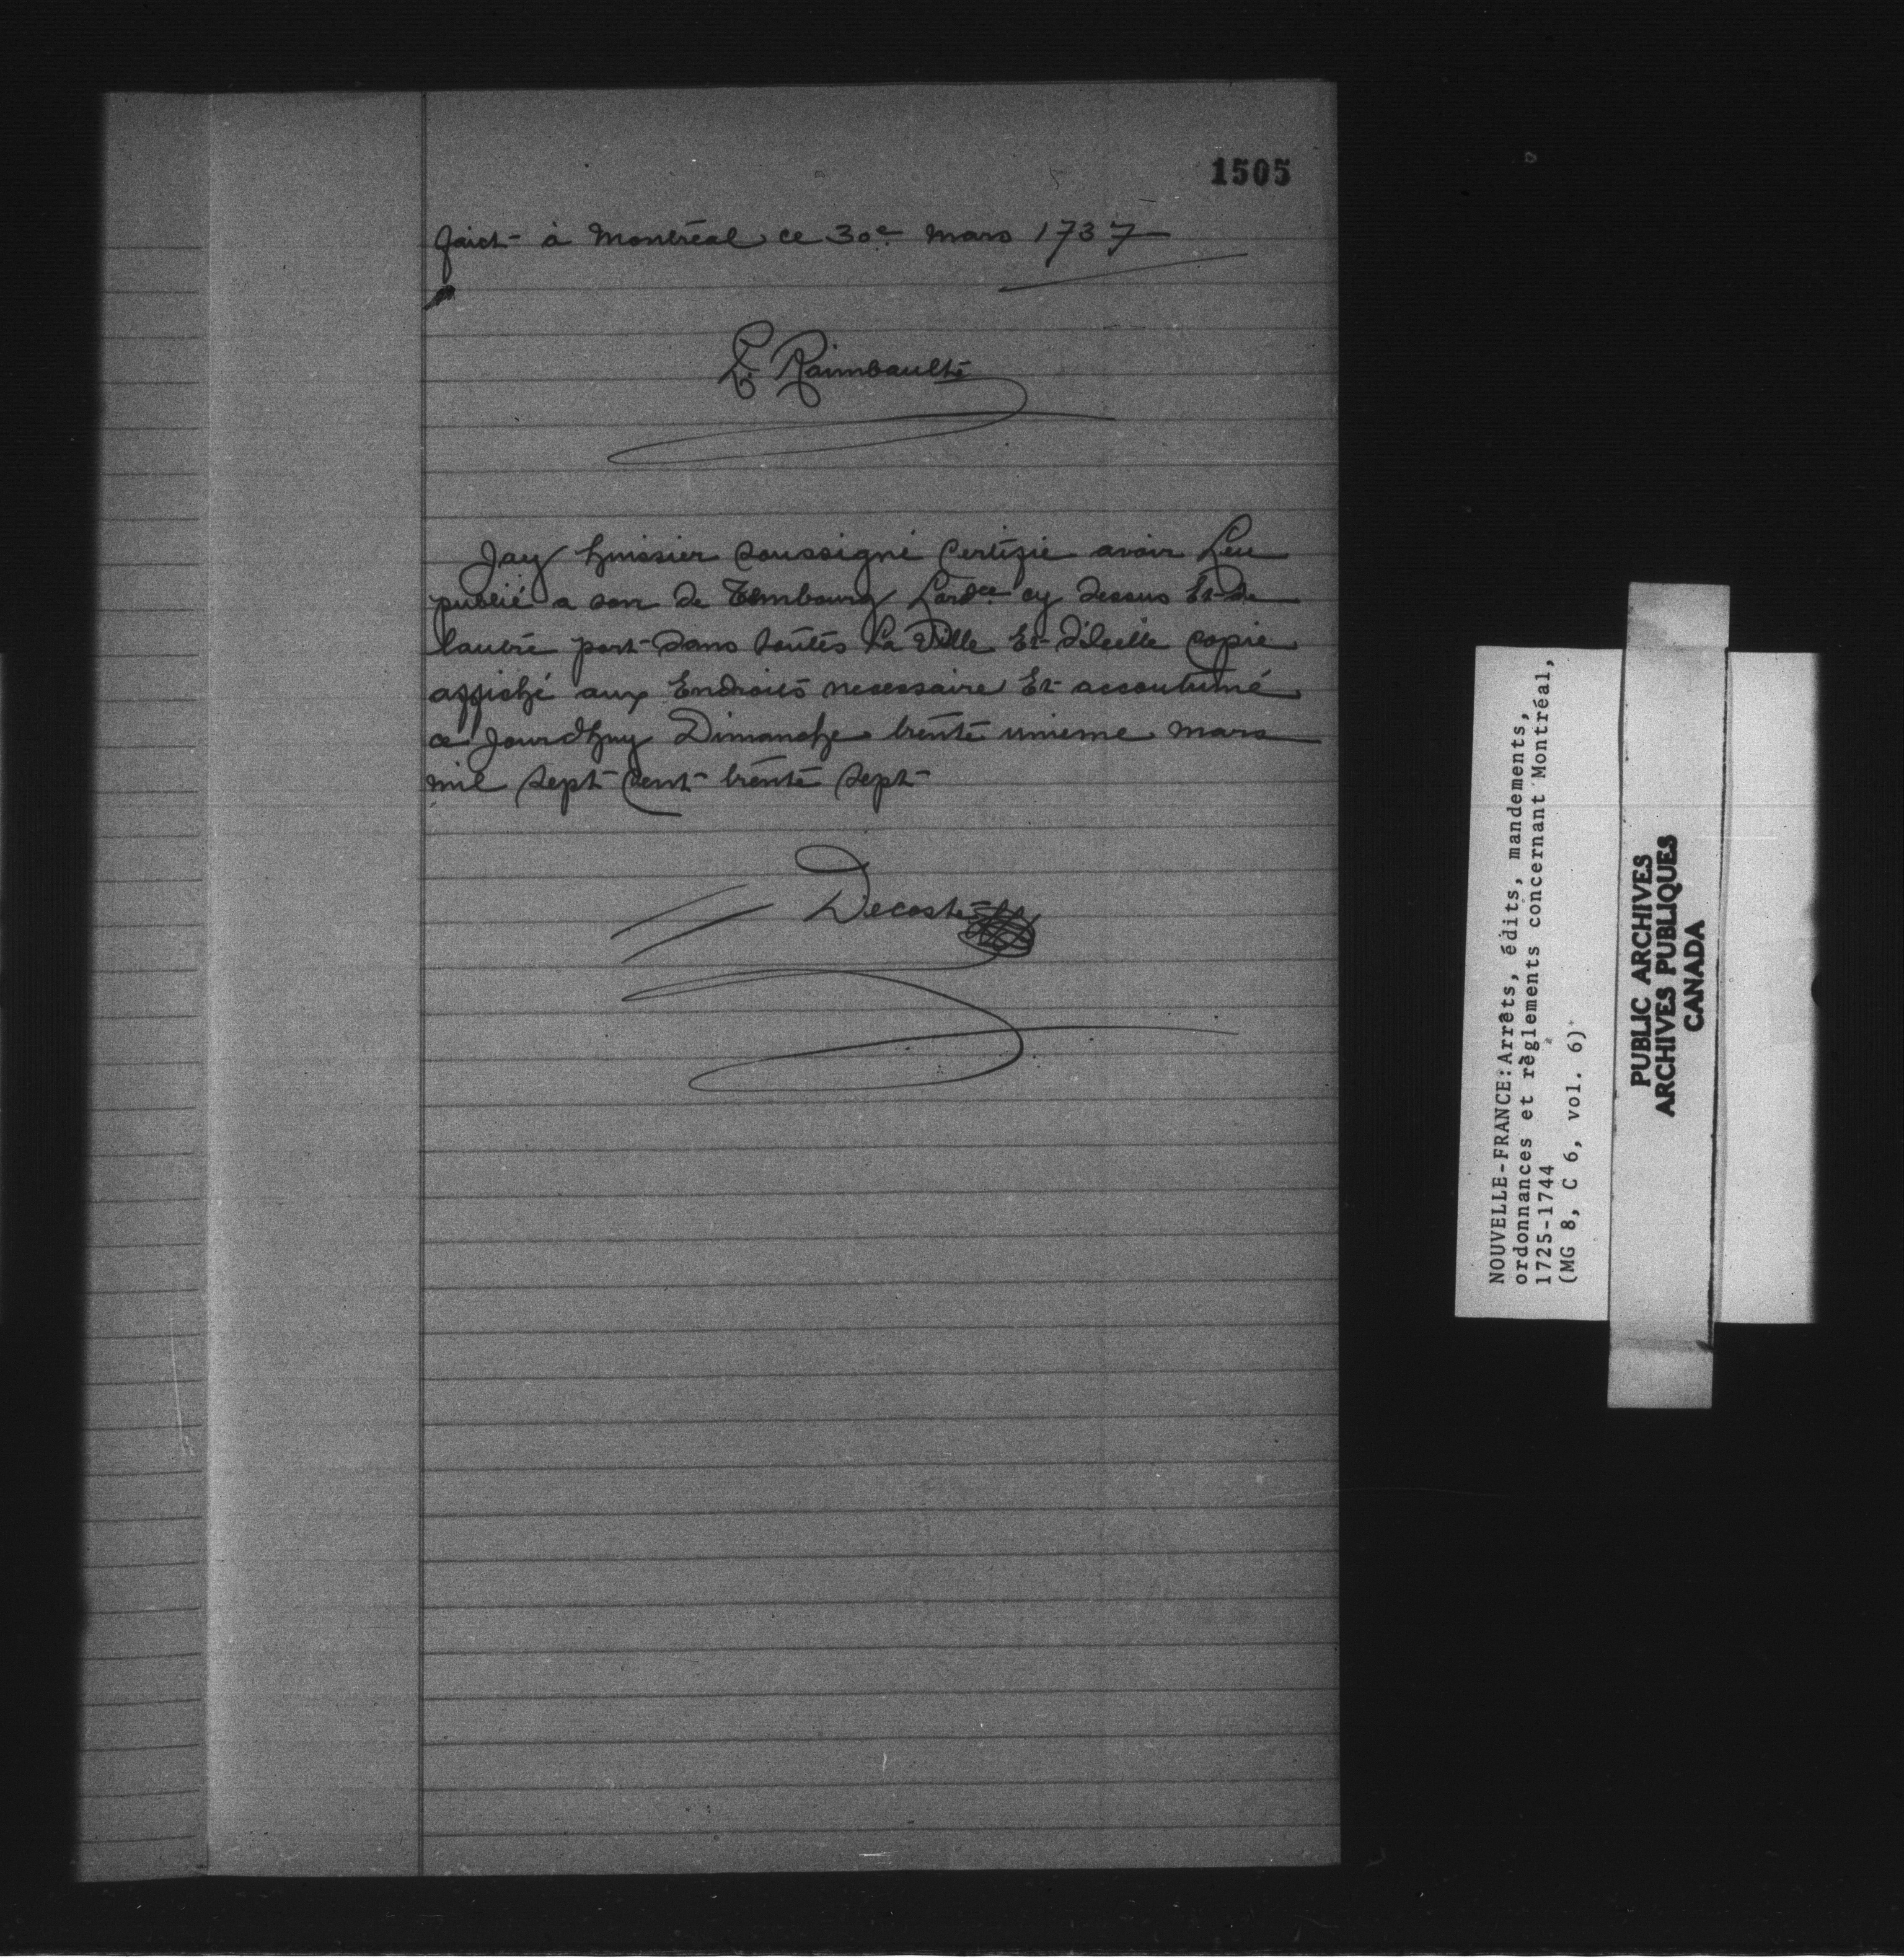 1505
faict à Montréal ce 30e mars 1737
P. Raimbault
Jay huissier soussigné Certifie avoir Leu
publié a son de Tembourg Lordce cy dessus Et de
lautre part dans toutes La Ville Et dilcelle copie
affiché aux Endroits necessaire Et accoutumé
ce jourdhuy Dimanche trente unieme mars
mil sept Cent trente sept
Decoste
NOUVELLE-FRANCE:Arrêts, édits, mandements,
ordonnances et règlements concernant Montréal,
1725-1744
(MG 8, C 6, vol. 6)
PUBLIC ARCHIVES
ARCHIVES PUBLIQUES
CANADA